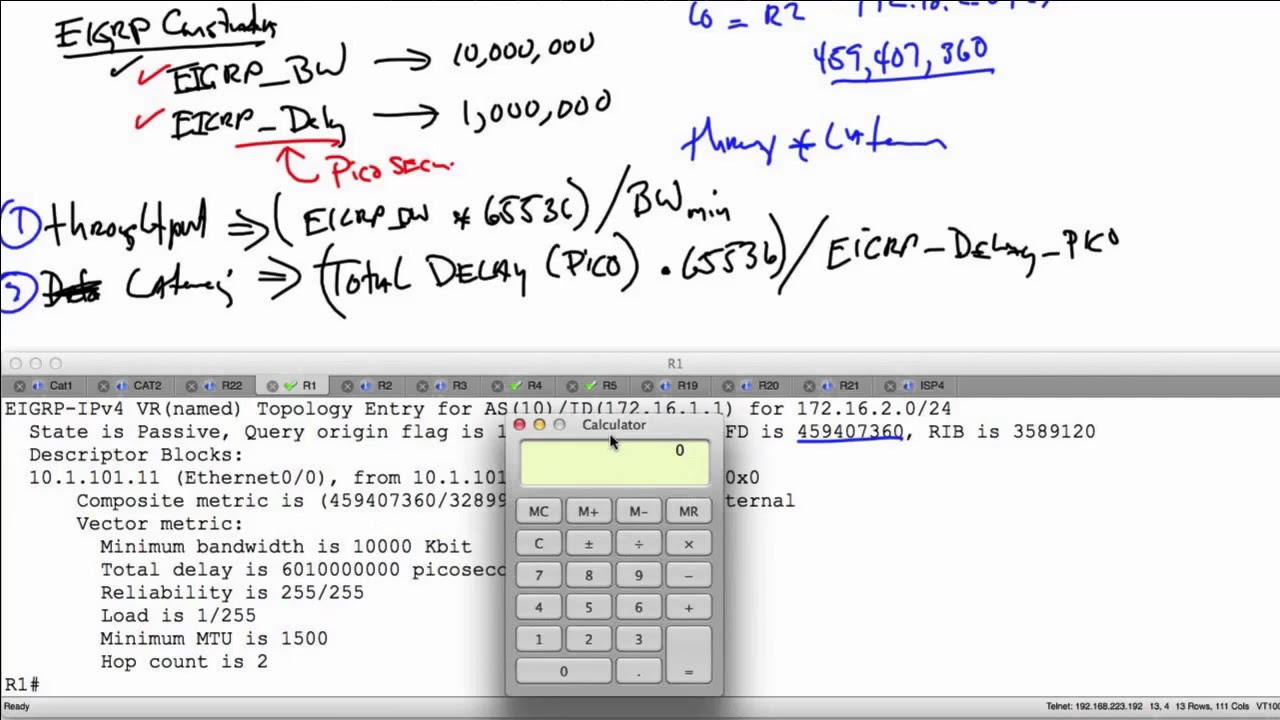 EIGRP Constants
Co = R2
✓ ✓ EIGRP_BW → 10,000,000
459,407,360
✓ EIGRP_Delay → 1,000,000
Pico Sec
① throughput ⇒ (EIGRP_BW * 65536) / BW min
② Latency ⇒ (Total DELAY (Pico) . 65536) / EIGRP_Delay_PICO
R1
Cat1 CAT2 R22 R1 R2 R3 R4 R5 R19 R20 R21 ISP4
EIGRP-IPv4 VR(named) Topology Entry for AS(10)/ID(172.16.1.1) for 172.16.2.0/24
State is Passive, Query origin flag is 1 FD is 459407360, RIB is 3589120
Descriptor Blocks:
10.1.101.11 (Ethernet0/0), from 10.1.101 0x0
Composite metric is (459407360/32899 ternal
Vector metric:
Minimum bandwidth is 10000 Kbit
Total delay is 6010000000 picoseco
Reliability is 255/255
Load is 1/255
Minimum MTU is 1500
Hop count is 2
R1#
Calculator
0
MC M+ M- MR
C ± ÷ ×
7 8 9 −
4 5 6 +
1 2 3
0 . =
Ready
Telnet: 192.168.223.192 13, 4 13 Rows, 111 Cols VT100